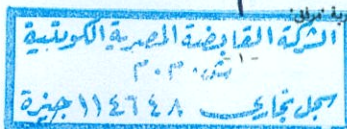 رية: مرفق:
الشركة القابضة المصرية الكويتية
ش.م.م
سجل تجارى ١١٤٦٤٨ جيزة